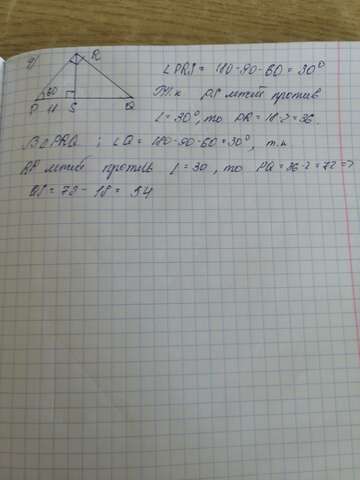 2)
R
60
P 18 S Q
∠PRS = 180-90-60 = 30°
Т.к PS лежит против
∠ = 30°, то PR = 18·2 = 36.
В △PRQ ; ∠Q = 180-90-60 = 30°, т.к
RP лежит против ∠ = 30, то PQ = 36·2 = 72 =>
QS = 72 - 18 = 54